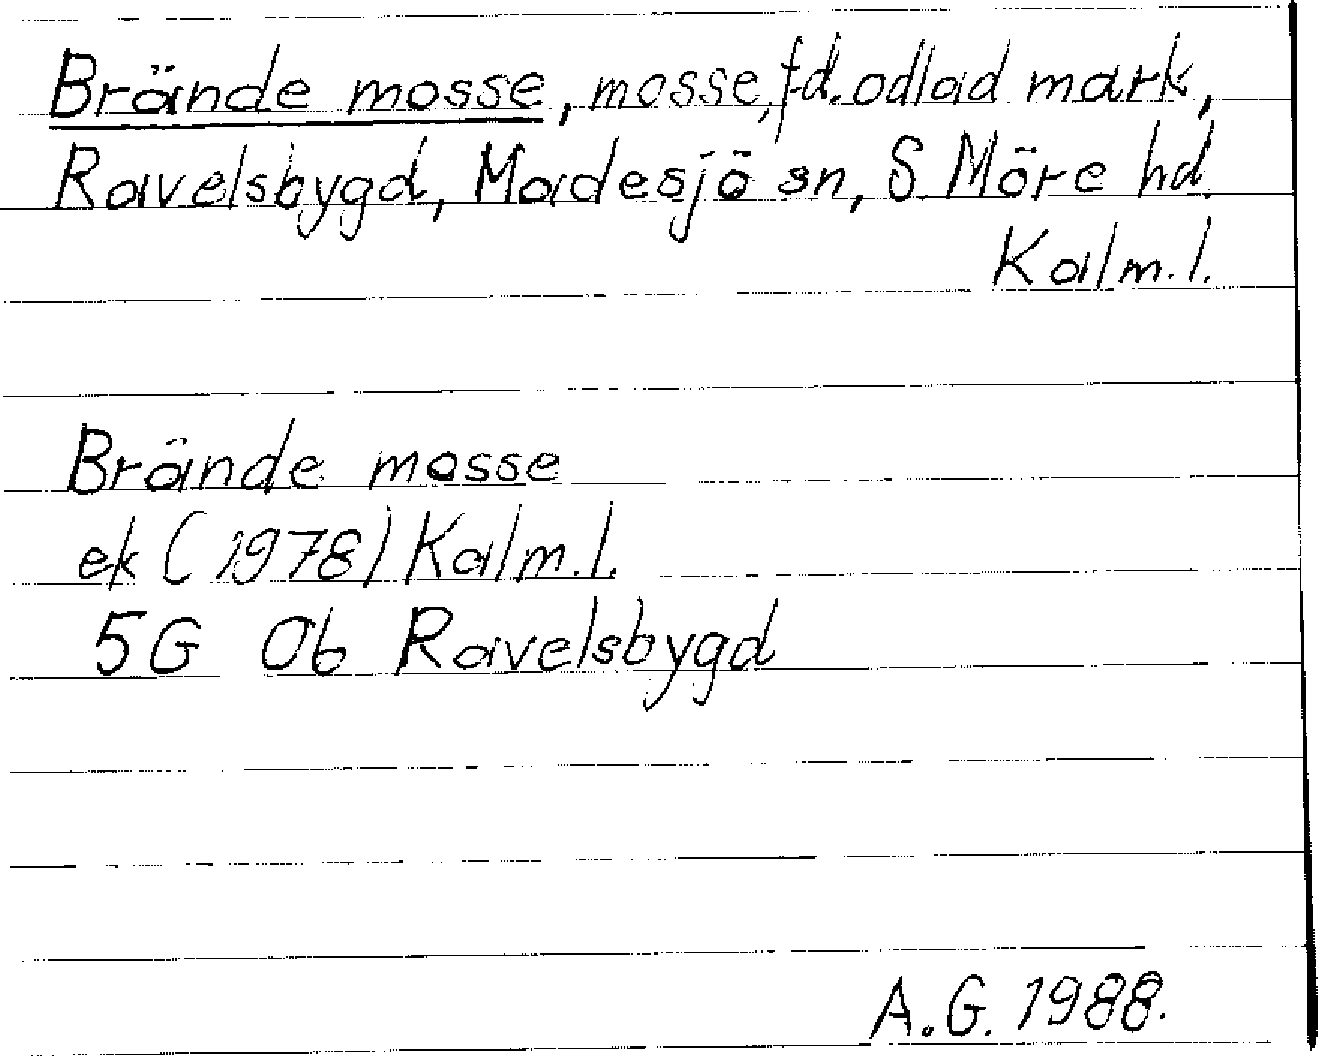 Brände mosse, mosse, fd. odlad mark,
Ravelsbygd, Madesjö sn, S Möre hd.
Kalm. l.
Brände mosse
ek (1978) Kalm. l.
5G 0b Ravelsbygd
A.G. 1988.